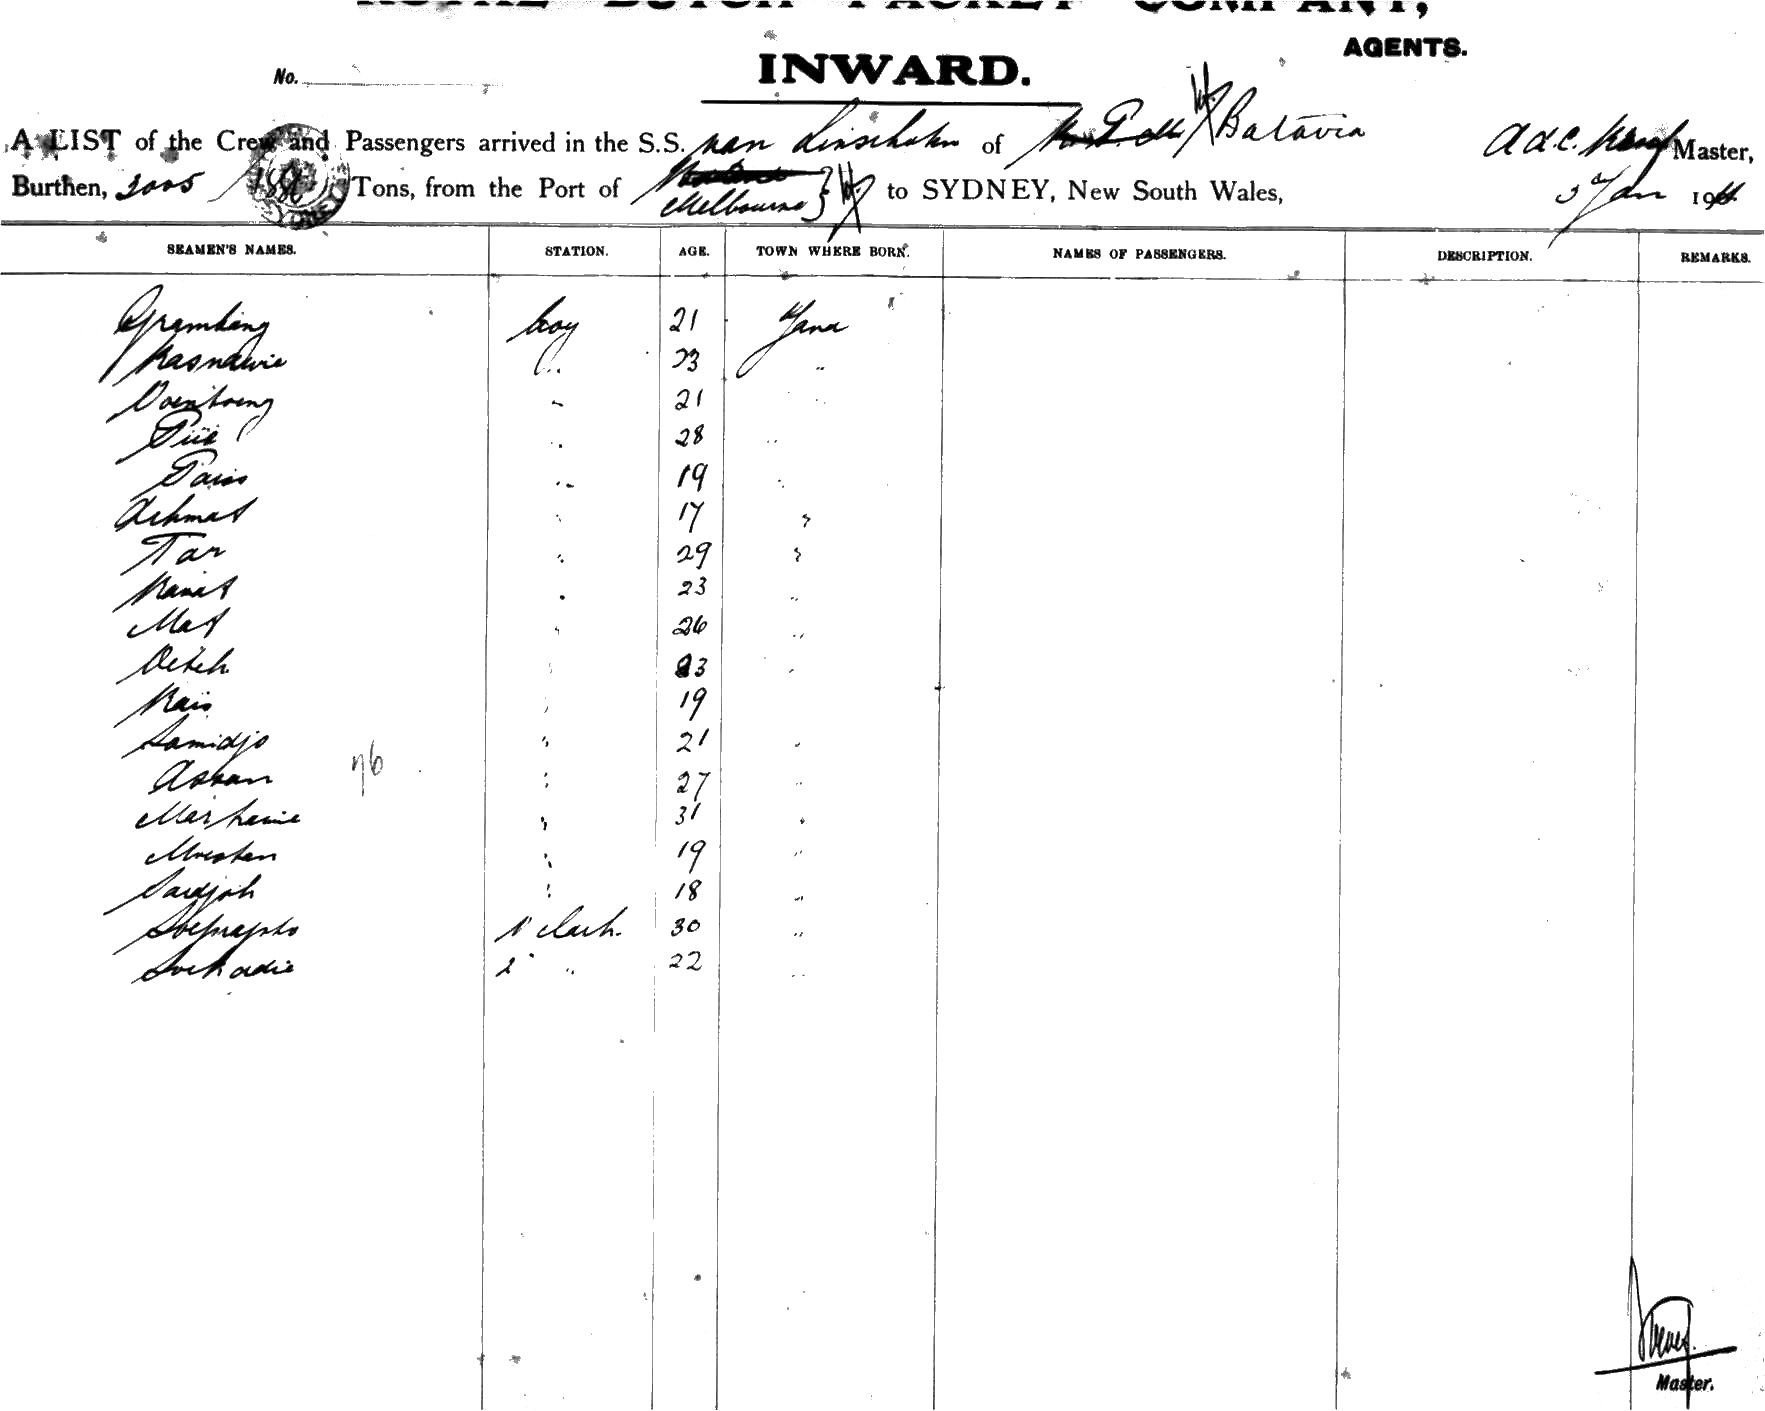 ROYAL DUTCH PACKET COMPANY,
AGENTS.
INWARD.
No.
A LIST of the Crew and Passengers arrived in the S.S. van Linschoten of Batavia A d. C. Master,
Burthen, 2005 Tons, from the Port of Melbourne to SYDNEY, New South Wales, 3 Jan 19
SEAMEN'S NAMES. STATION. AGE. TOWN WHERE BORN. NAMES OF PASSENGERS. DESCRIPTION. REMARKS.
Grambang boy 21 Java
Kasnawie " 23 "
Doentoeng " 21 "
Piie " 28 "
Pais " 19 "
Achmat " 17 "
Tar " 29 "
Kanat " 23 "
Mat " 26 "
Oeteh " 23 "
Kais " 19 "
Samidjo " 21 "
Assan " 27 "
76
Markanie " 31 "
Moestan " 19 "
Sardjoh " 18 "
Soeprapto 1e clerk. 30 "
Soekadie 2e " 22 "
Master.